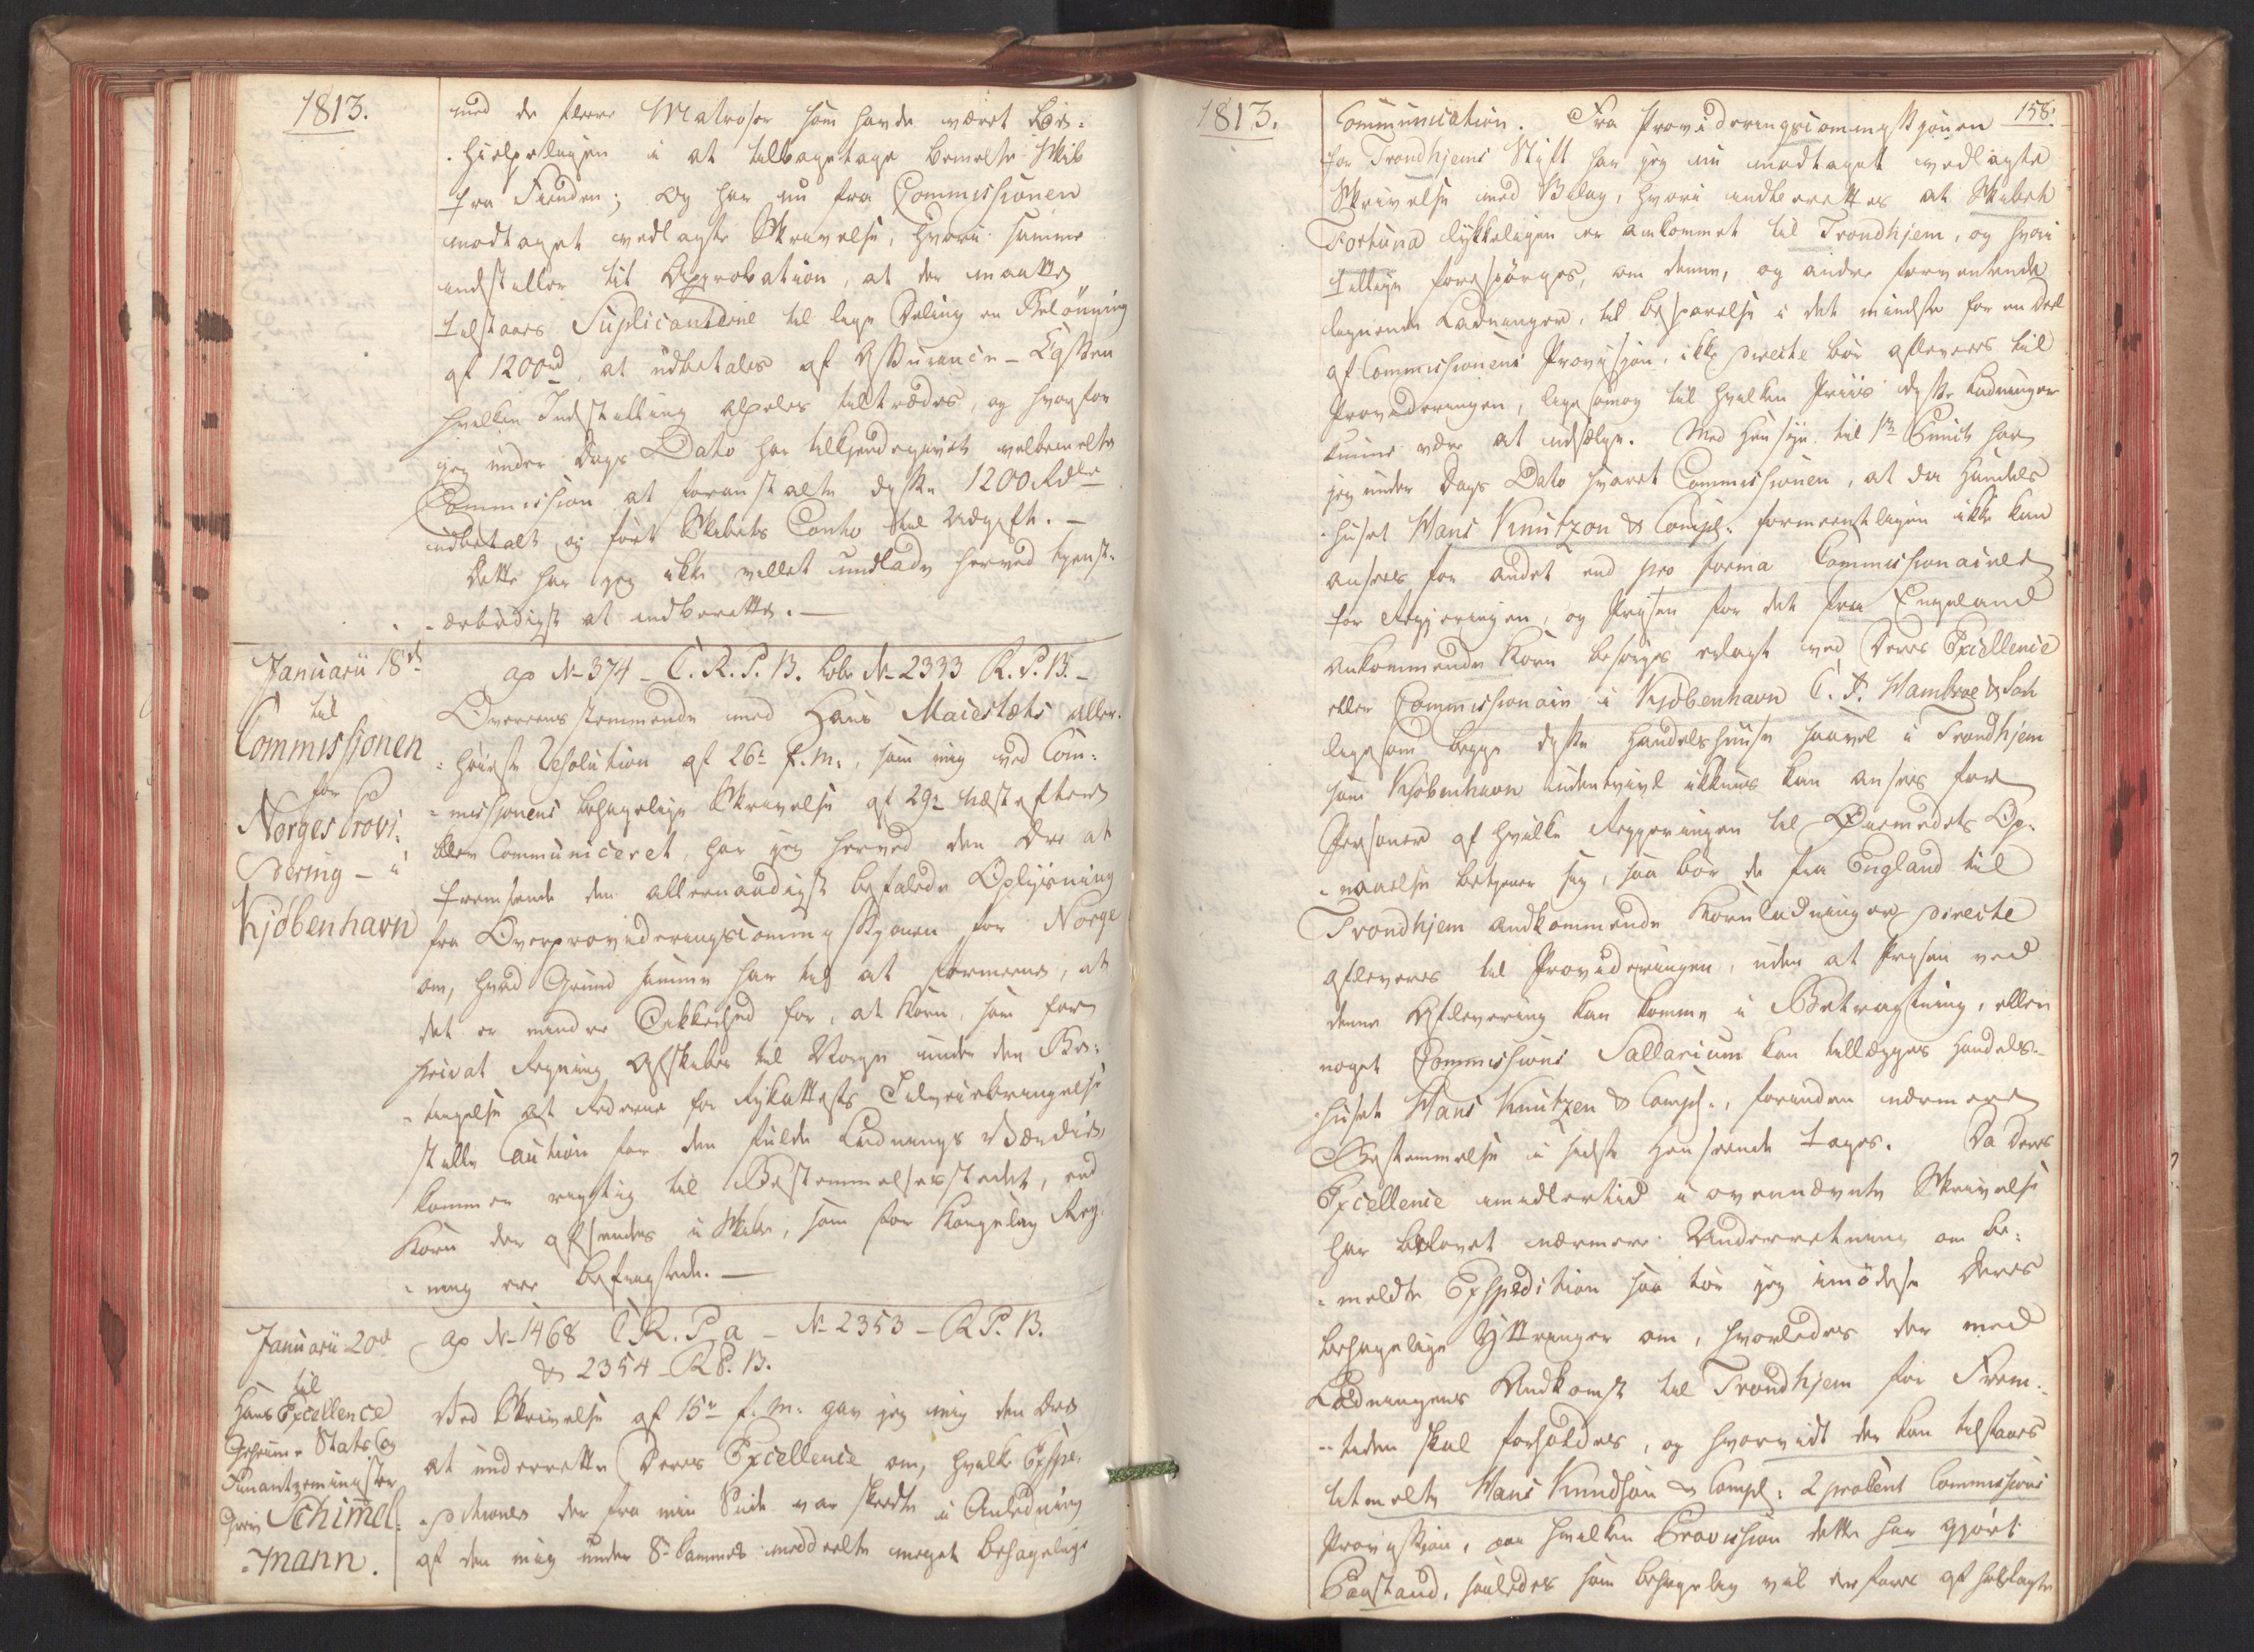 1813.
med de fleere Matroser som havde været be=
hjelpeligen i at tilbagetage bemelte Skib
fra Fienden; og har nu fra Commissionen
modtaget vedlagte Skrivelse, hvori samme
indstiller til Approbation, at der maatte
tilstaaes Suplicanterne til lige Deling en Belönning
af 1200 rd, at udbetales af Assurance-Cassen
hvilken Indstilling aldeles tiltrædes, og hvorfor
jeg under Dags Dato har tilkjendegivet velbemelte
Commission at foranstalte disse 1200 Rdlr
udbetalt og fört Skibets Conto til Udgift. —
Dette har jeg ikke villet undlade herved tjenst=
ærbödigst at indberette. —
Januarii 18d
til
Commissionen
for
Norges Provi=
dering - i
Kjöbenhavn
ap No 374 - C. R. P. B. lbr No 2333 R. P. B. -
Overeensstemmende med Hans Maiestæts aller=
höieste Resolution af 26. f. m., som mig ved Com=
missionens behagelige Skrivelse af 29. næstefter
blev Communiceret, har jeg herved den Ære at
fremsende den allernaadigst befalede Oplysning
fra Overprovideringscommissionen for Norge
om, hvad Grund samme har til at formeene, at
det er mindre Sikkerhed for, at Korn, som for
privat Regning afskibes til Norge under den Be=
tingelse at Rederne for Rykattests Tilveiebringelse
stille Caution for den fulde Ladnings Værdie,
kommer rigtig til Bestemmelsesstedet, end
Korn der afsendes i Skibe, som for Kongelig Reg=
ning ere befragtede. —
Januarii 20d
til
Hans Excellence
Geheime Stats og
Finantzminister
Grev Schimel=
mann.
ap No 1468 C. R. P. a - No 2353 - R P. B.
& 2354 - R P. B.
Ved Skrivelse af 15de f. m. gav jeg mig den Ære
at underrette Deres Excellence om, hvilke Expe=
ditioner der fra min Side var skeedte i Anledning
af den mig under 8. sammes meddeelte meget behagelige
1813.
158.
Communication. Fra Provideringscommissionen
for Trondhjems Stift har jeg nu modtaget vedlagte
Skrivelse med Bilag, hvori indberettes at Skibet
Fortuna lykkeligen er ankommet til Trondhjem, og hvori
tillige forespörges, om denne, og andre forventende
lignende Ladninger, til besparelse i det mindste for en Deel
af Commissionens Provision, ikke directe bör afleveres til
Provideringen, ligesom og til hvilken Priis disse Ladninger
kunne være at udsælge. Med Hensyn til 1ste Punct har
jeg under Dags Dato svaret Commissionen, at da Handels
huset Hans Knutzon & Compl: formeentligen ikke kan
ansees for andet end pro forma Commissionairer
for Regjeringen, og Prisen for det fra Engeland
ankommende Korn besörges erlagt ved Deres Excellence
eller Commissionair i Kjöbenhavn C. J. Hambroe & Sön
ligesom begge disse Handelshuuse saavel i Trondhjem
som Kjöbenhavn udentvivl ikkuns kan ansees for
Personer af hvilke Regjeringen til Öiemedets Op=
naaelse betjener sig, saa bör de fra England til
Trondhjem ankommende Kornladninger directe
afleveres til Provideringen, uden at Prisen ved
denne Aflevering kan komme i Betragtning, eller
noget Commissions Sallarium kan tillægges Handels=
huset Hans Knutzen & Compl:, forinden nærmere
Bestemmelse i sidste Henseende tages. Da Deres
Excellence imidlertid i ovennævnte Skrivelse
har belovet nærmere Underretning om be=
meldte Expedition saa tör jeg imödese Deres
behagelige Yttringer om, hvorledes der med
Ladningens Ankomst til Trondhjem for Frem=
tiden skal forholdes, og hvorvidt der kan tilstaaes
bemelte Hans Knudson & Compl: 2 procent Commissions
Provission, paa hvilken Provision dette har gjort
Paastand, saaledes som behagelig vil erfares af hoslagte